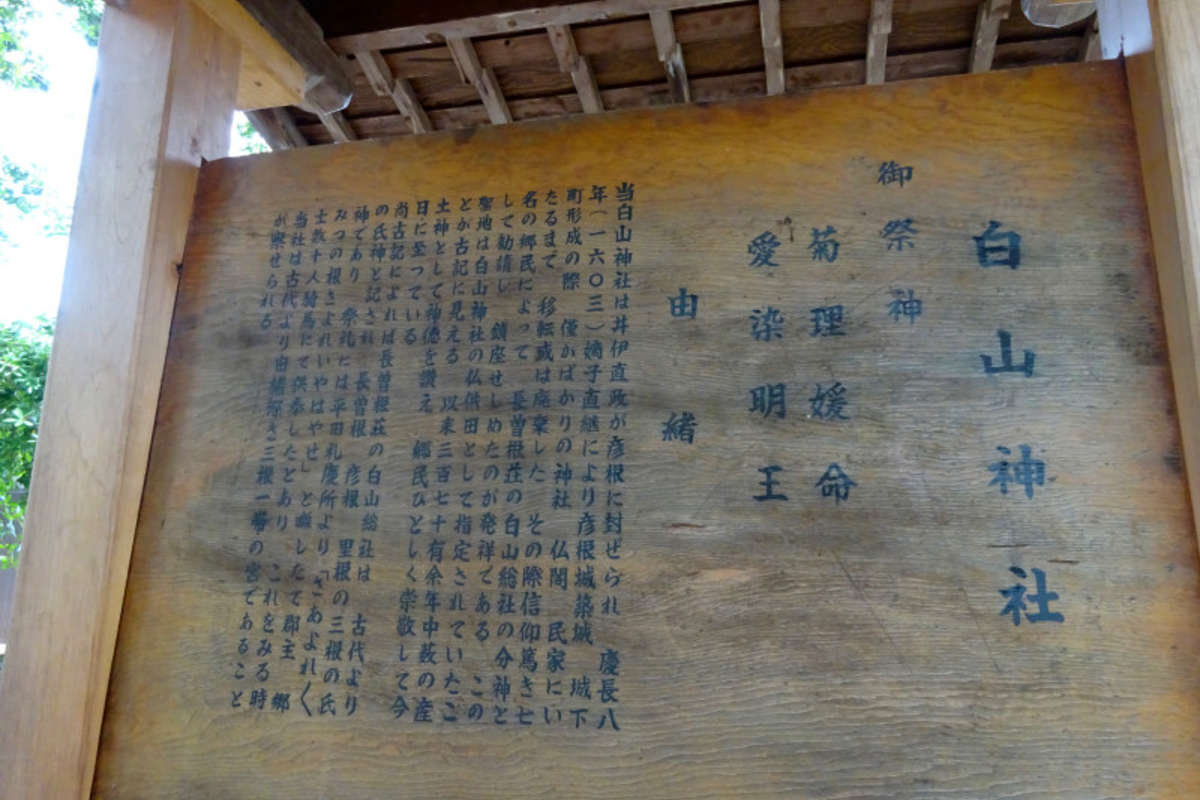 白山神社
御祭神
菊理媛命
愛染明王
由緒
当白山神社は井伊直政が彦根に封ぜられ 慶長八
年(一六〇三)嫡子直継により彦根城築城 城下
町形成の際 僅かばかりの神社 仏閣 民家にい
たるまで 移転或は廃棄した その際信仰篤き七
名の郷民によって 長曽根荘の白山総社の分神と
して勧請し 鎮座せしめたのが発祥である この
聖地は白山神社の仏供田として指定されていたこ
とが古記に見える 以来三百七十有余年中薮の産
土神として神徳を讃え 郷民ひとしく崇敬して今
日に至っている
尚古記によれば長曽根荘の白山総社は 古代より
の氏神と記され 長曽根 彦根 里根の三根の氏
神であり 祭礼には平田札慶所より「さあよれ〱
みつの根さよれいやはやせ」と囃したて郡主 郷
士数十人騎馬にて供奉したとあり これをみる時
当社は古代より由緒深き三根一帯の宮であること
が察せられる